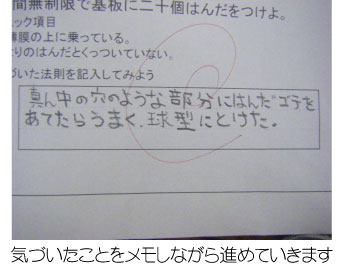 間無制限で基板に二十個はんだをつけよ。
ック項目
薄膜の上に乗っている。
なりのはんだとくっついていない。
づいた法則を記入してみよう
真ん中の穴のような部分にはんだゴテを
あてたらうまく、球型にとけた。
気づいたことをメモしながら進めていきます